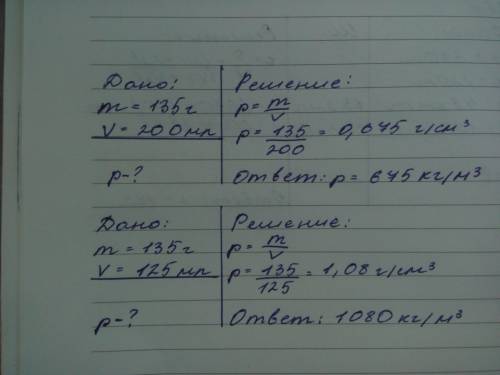 Дано:
m = 135г
V = 200 мл
p-?
Решение:
p = m/V
p = 135/200 = 0,675 г/см³
Ответ: p = 675 кг/м³
Дано:
m = 135г
V = 125 мл
p-?
Решение:
p = m/V
p = 135/125 = 1,08 г/см³
Ответ: 1080 кг/м³